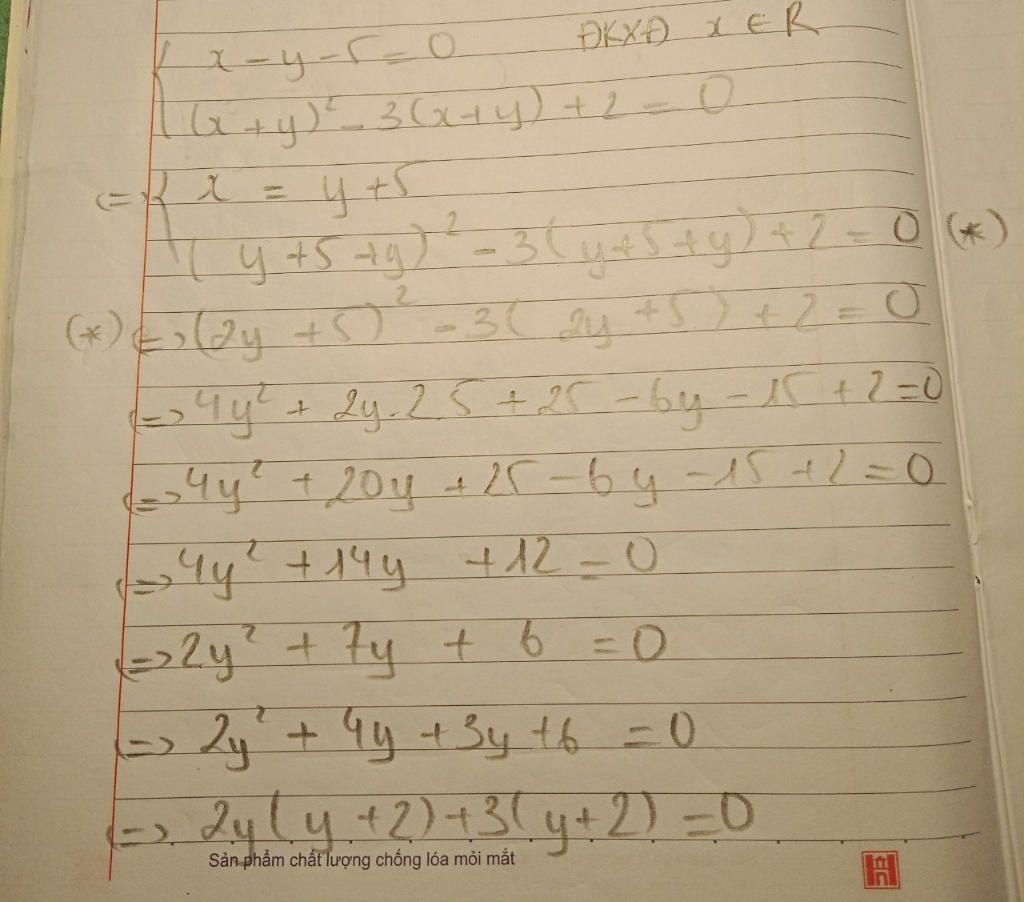 { x - y - 5 = 0 ĐKXĐ x ∈ R
(x + y)² - 3(x+y) + 2 = 0
<=> { x = y + 5
( y + 5 + y )² - 3( y + 5 + y) + 2 = 0 (*)
(*) <=> (2y + 5)² - 3( 2y + 5) + 2 = 0
<=> 4y² + 2y.2.5 + 25 - 6y - 15 + 2 = 0
<=> 4y² + 20y + 25 - 6y - 15 + 2 = 0
<=> 4y² + 14y + 12 = 0
<=> 2y² + 7y + 6 = 0
<=> 2y² + 4y + 3y + 6 = 0
<=> 2y( y + 2) + 3( y + 2) = 0
Sản phẩm chất lượng chống lóa mỏi mắt